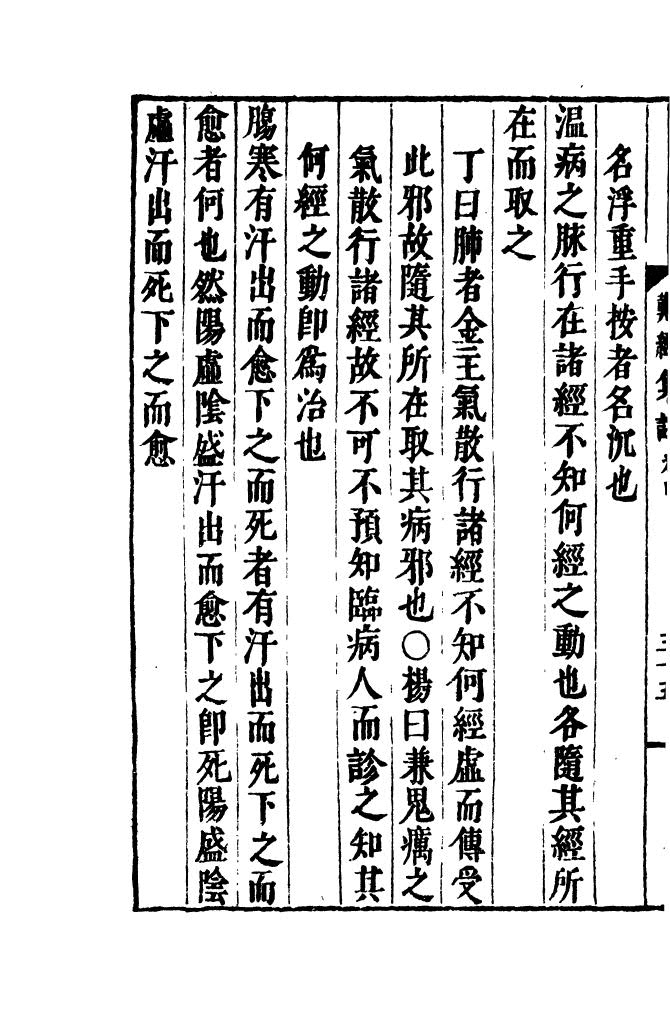 名浮重手按者名沉也
温病之脉行在諸經不知何經之動也各隨其經所
在而取之
丁曰肺者金主氣散行諸經不知何經虛而傳受
此邪故隨其所在取其病邪也〇楊曰兼鬼癘之
氣散行諸經故不可不預知臨病人而診之知其
何經之動卽爲治也
傷寒有汗出而愈下之而死者有汗出而死下之而
愈者何也然陽虛陰盛汗出而愈下之卽死陽盛陰
虛汗出而死下之而愈